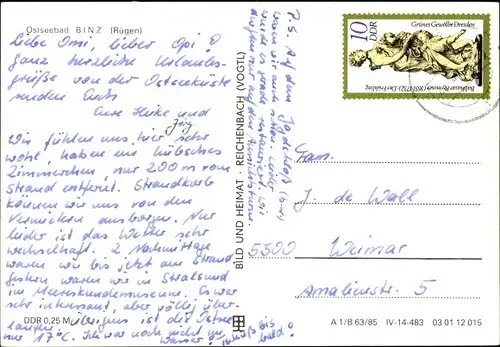 Ostseebad BINZ (Rügen)
Liebe Omi, lieber Opi!
ganz herzliche Urlaubs-
grüße von der Ostseeküste
senden Euch
Eure Heike und
Jörg
Wir fühlen uns hier sehr
wohl, haben ein hübsches
Zimmerchen, nur 200 m vom
Strand entfernt. Strandkorb
können wir uns von den
Vermietern ausborgen. Nur
leider ist das Wetter sehr
wechselhaft. 2 Nachmittage
waren wir bis jetzt am Strand
gestern waren wir in Stralsund
im Meereskundemuseum. Es war
sehr interessant, aber völlig über-
laufen. Übrigens ist die Ostsee
nur 17°C. Ich war noch nicht im
Wasser.
Tschüß bis
bald!
DDR 0,25 M
P.S. Auf dem Jagdschloß
waren wir auch schon. Leider
wurde es gerade restauriert.
BILD UND HEIMAT · REICHENBACH (VOGTL)
Grünes Gewölbe Dresden
10 DDR
Balthasar Permoser (1651-1732) Der Frühling
Fam.
J. de Wall
5300 Weimar
Amalienstr. 5
A 1/B 63/85 IV-14-483 03 01 12 015